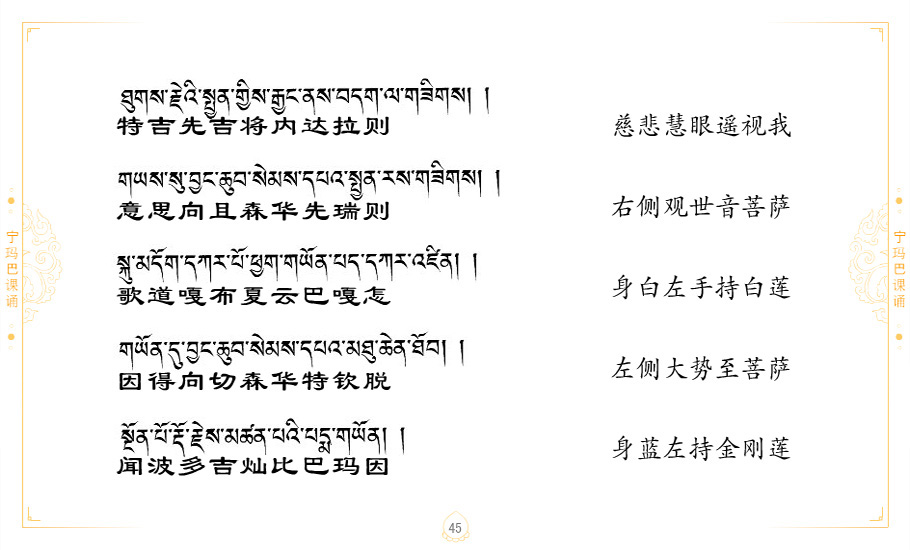 ཐུགས་རྗེའི་སྤྱན་གྱིས་རྒྱང་ནས་བདག་ལ་གཟིགས། །
特吉先吉将内达拉则
慈悲慧眼遥视我
གཡས་སུ་བྱང་ཆུབ་སེམས་དཔའ་སྤྱན་རས་གཟིགས། །
意思向且森华先瑞则
右侧观世音菩萨
སྐུ་མདོག་དཀར་པོ་ཕྱག་གཡོན་པད་དཀར་འཛིན། །
歌道嘎布夏云巴嘎怎
身白左手持白莲
གཡོན་དུ་བྱང་ཆུབ་སེམས་དཔའ་མཐུ་ཆེན་ཐོབ། །
因得向切森华特钦脱
左侧大势至菩萨
སྔོན་པོ་རྡོ་རྗེས་མཚན་པའི་པདྨ་གཡོན། །
闻波多吉灿比巴玛因
身蓝左持金刚莲
宁玛巴课诵
宁玛巴课诵
45